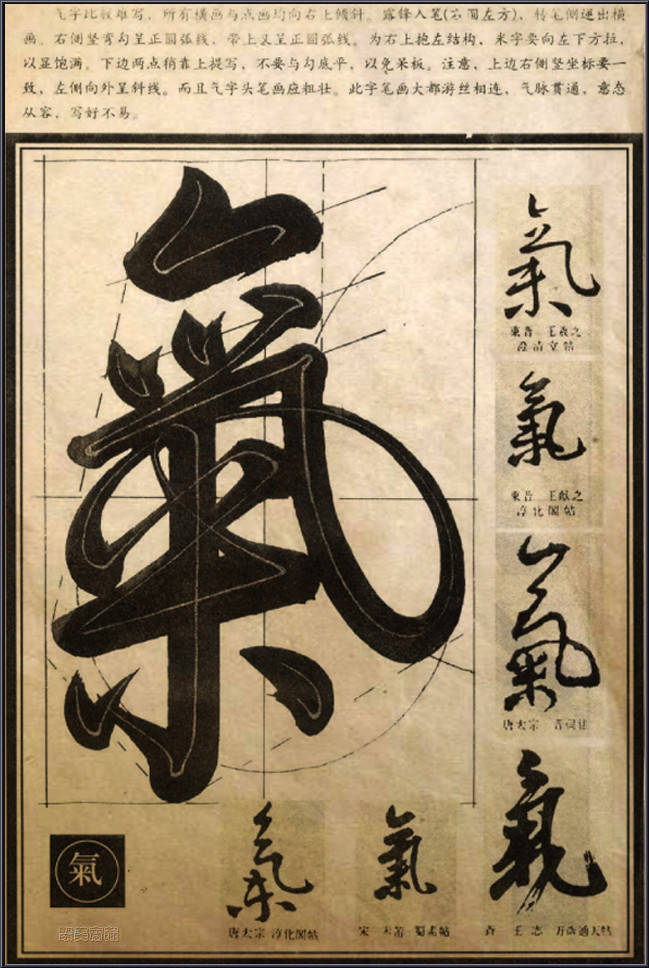 气字比较难写，所有横画与点画均向右上倾斜。露锋入笔(右圆左方)，转笔侧逆出横
画。右侧竖弯勾呈正圆弧线，带上又呈正圆弧线。为右上抱左结构，米字要向左下方拉，
以显饱满。下边两点稍靠上提写，不要与勾底平，以免呆板。注意，上边右侧竖坐标要一
致，左侧向外呈斜线。而且气字头笔画应粗壮。此字笔画大都游丝相连，气脉贯通，意态
从容，写好不易。
氣
氣
東晋 王羲之
澄清堂帖
氣
東晋 王献之
淳化閣帖
氣
唐太宗
氣
氣
唐太宗 淳化閣帖
氣
宋 米芾 蜀素帖
氣
王志 万歲通天帖
氣